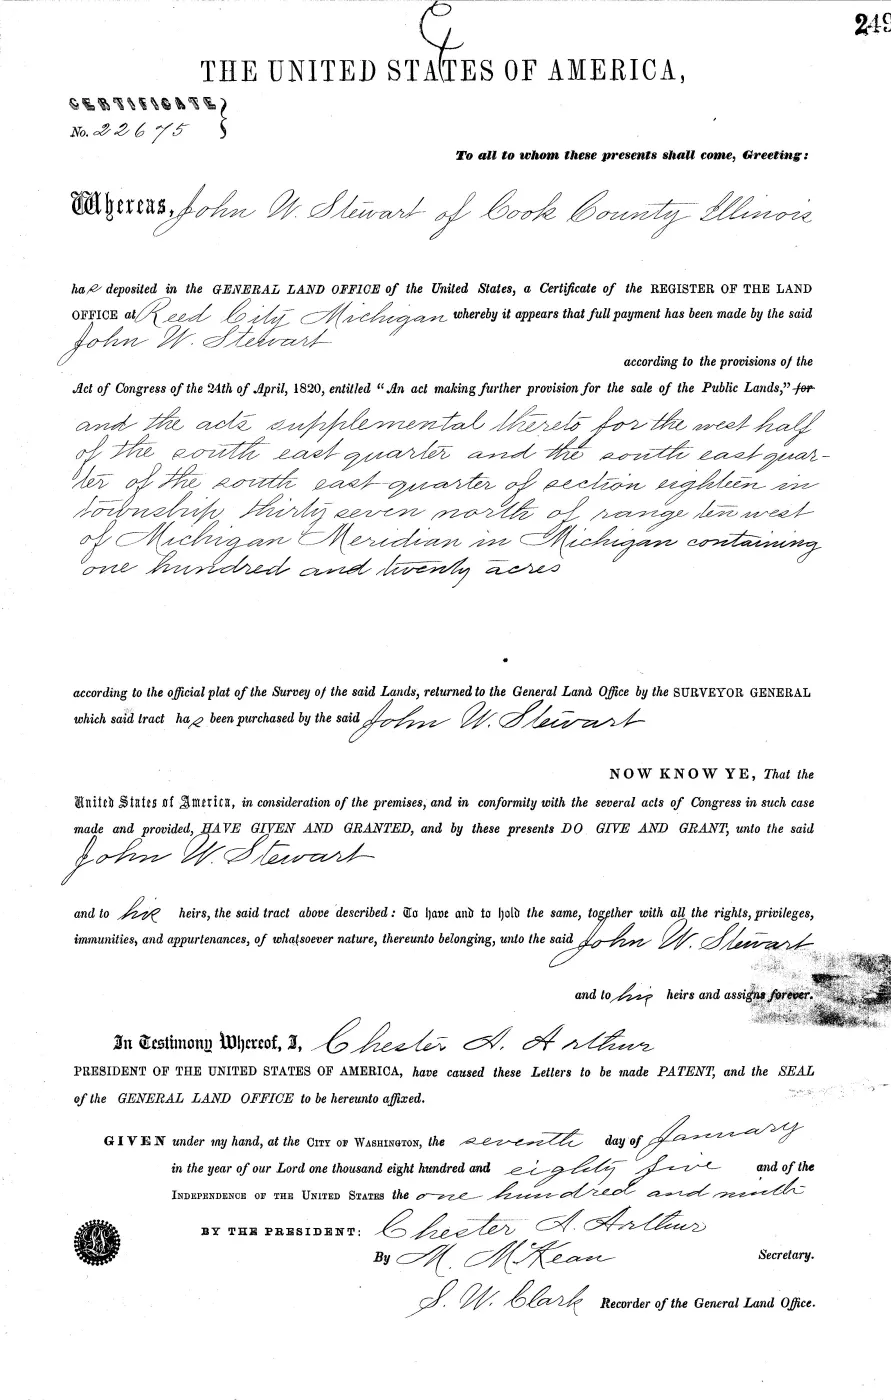 249
THE UNITED STATES OF AMERICA,
CERTIFICATE
No. 22675
To all to whom these presents shall come, Greeting:
Whereas, John W. Stewart of Cook County Illinois
has deposited in the GENERAL LAND OFFICE of the United States, a Certificate of the REGISTER OF THE LAND
OFFICE at Reed City Michigan whereby it appears that full payment has been made by the said
John W. Stewart
according to the provisions of the
Act of Congress of the 24th of April, 1820, entitled "An act making further provision for the sale of the Public Lands," for
and the acts supplemental thereto for the west half
of the south east quarter and the south east quar-
ter of the south east quarter of section eighteen in
township thirty seven north of range ten west
of Michigan Meridian in Michigan containing
one hundred and twenty acres
according to the official plat of the Survey of the said Lands, returned to the General Land Office by the SURVEYOR GENERAL
which said tract has been purchased by the said John W. Stewart
NOW KNOW YE, That the
United States of America, in consideration of the premises, and in conformity with the several acts of Congress in such case
made and provided, HAVE GIVEN AND GRANTED, and by these presents DO GIVE AND GRANT, unto the said
John W. Stewart
and to his heirs, the said tract above described: To have and to hold the same, together with all the rights, privileges,
immunities, and appurtenances, of whatsoever nature, thereunto belonging, unto the said John W. Stewart
and to his heirs and assigns forever.
In Testimony Whereof, I, Chester A. Arthur
PRESIDENT OF THE UNITED STATES OF AMERICA, have caused these Letters to be made PATENT, and the SEAL
of the GENERAL LAND OFFICE to be hereunto affixed.
GIVEN under my hand, at the CITY OF WASHINGTON, the seventh day of January
in the year of our Lord one thousand eight hundred and eighty five and of the
INDEPENDENCE OF THE UNITED STATES the one hundred and ninth
BY THE PRESIDENT: Chester A. Arthur
By M. McKean Secretary.
S. W. Clark Recorder of the General Land Office.